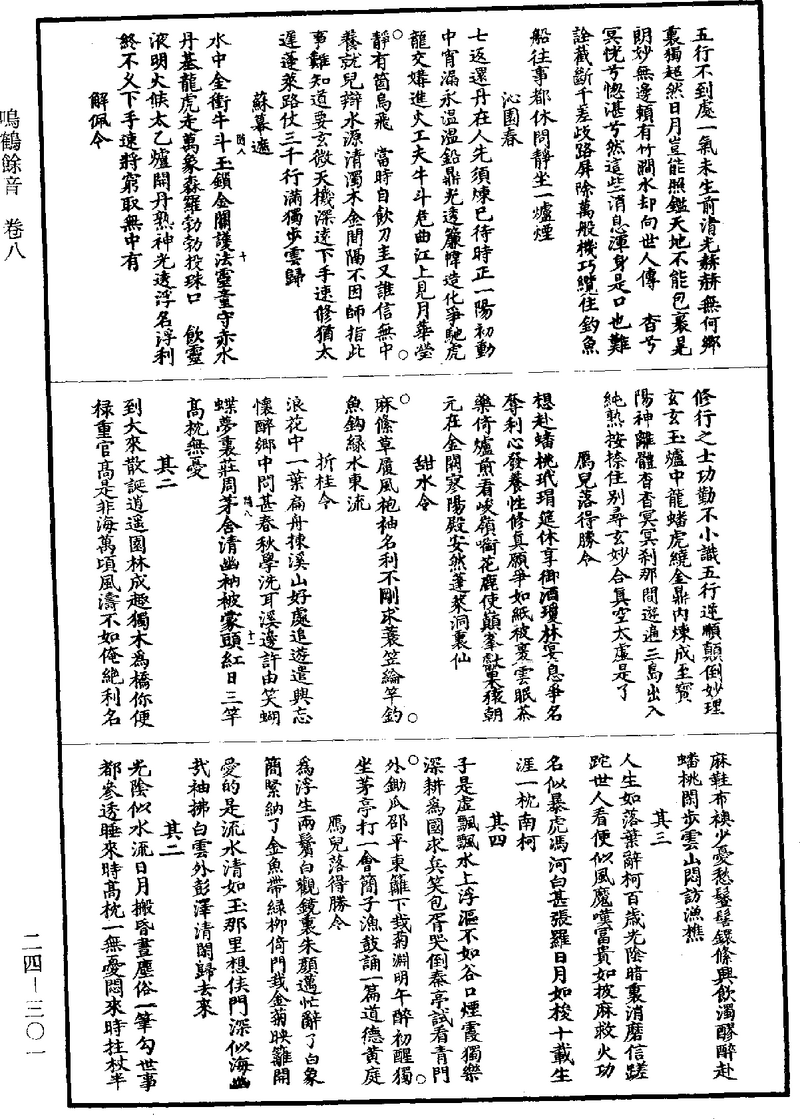 五行不到處一氣未生前清光赫赫無何鄉
裏獨超然日月豈能照鑑天地不能包裹是
朗妙無邊賴有竹澗水却向世人傳　杳兮
冥恍兮惚湛兮然這些消息渾身是口也難
詮截斷千差歧路屏除萬般機巧纜住釣魚
船往事都休問靜坐一爐煙
沁園春
七返還丹在人先須煉已待時正一陽初動
中宵漏永温温鉛鼎光透簾幃造化爭馳虎
龍交媾進火工夫牛斗危曲江上見月華瑩
靜有箇烏飛　當時自飲刀圭又誰信無中
養就兒辯水源清濁木金間隔不因師指此
事難知道要玄微天機深遠下手速修猶太
遲蓬萊路仗三千行滿獨步雲歸
蘇幕遮
水中金衝牛斗玉鎖金關護法靈童守赤水
丹基龍虎走萬象森羅勃勃投珠口　飲靈
液明火候太乙爐開丹熟神光透浮名浮利
終不乆下手速將窮取無中有
解佩令
修行之士功勤不小識五行逆順顛倒妙理
玄玄玉爐中龍蟠虎繞金鼎内煉成至寳
陽神離體杳杳冥冥刹那間遊遍三島出入
純熟按捺住别尋玄妙合真空太虚是了
鴈兒落得勝令
想赴蟠桃玳瑁筵休享御酒瓊林宴息爭名
奪利心發養性修真願爭如紙被裹雲眠茶
藥倚爐煎看峻嶺㗸花鹿使巔峯獻菓猿朝
元在金闕寥陽殿安然蓬萊洞裏仙
甜水令
麻絛草履風袍袖名利不剛求蓑笠綸竿釣
魚鈎緑水東流
折桂令
浪花中一葉扁舟揀溪山好處追遊遣興忘
懷醉鄉中問甚春秋學洗耳溪邊許由笑蝴
蝶夢裏莊周茅舍清幽衲被蒙頭紅日三竿
髙枕無憂
其二
到大來散誕逍遥園林成趣獨木爲橋你便
禄重官髙是非海萬頃風濤不如俺絶利名
麻鞋布襖少憂愁鬔髩鐶絛興飲濁醪醉赴
蟠桃閑步雲山悶訪漁樵
其三
人生如落葉辭柯百歲光陰暗裏消磨信蹉
跎世人看便似風魔嘆富貴如披麻救火功
名似暴虎馮河白甚張羅日月如梭十載生
涯一枕南柯
其四
子是虚飄飄水上浮漚不如谷口煙霞獨樂
深耕爲國求兵笑包胥哭倒秦亭試看青門
外鋤瓜邵平東籬下栽菊淵明午醉初醒獨
坐茅亭打一會簡子漁鼓誦一篇道德黄庭
鴈兒落得勝令
爲浮生兩鬢白觀鏡裏朱顔邁忙辭了白象
簡緊納了金魚帶緑柳倚門栽金菊映籬開
愛的是流水清如玉那里想侯門深似海幽
哉袖拂白雲外彭澤清閑歸去來
其二
光陰似水流日月搬昏晝塵俗一筆勾世事
都參透睡來時髙枕一無憂悶來時拄杖半
鳴鶴餘音　卷八
二四－三〇一